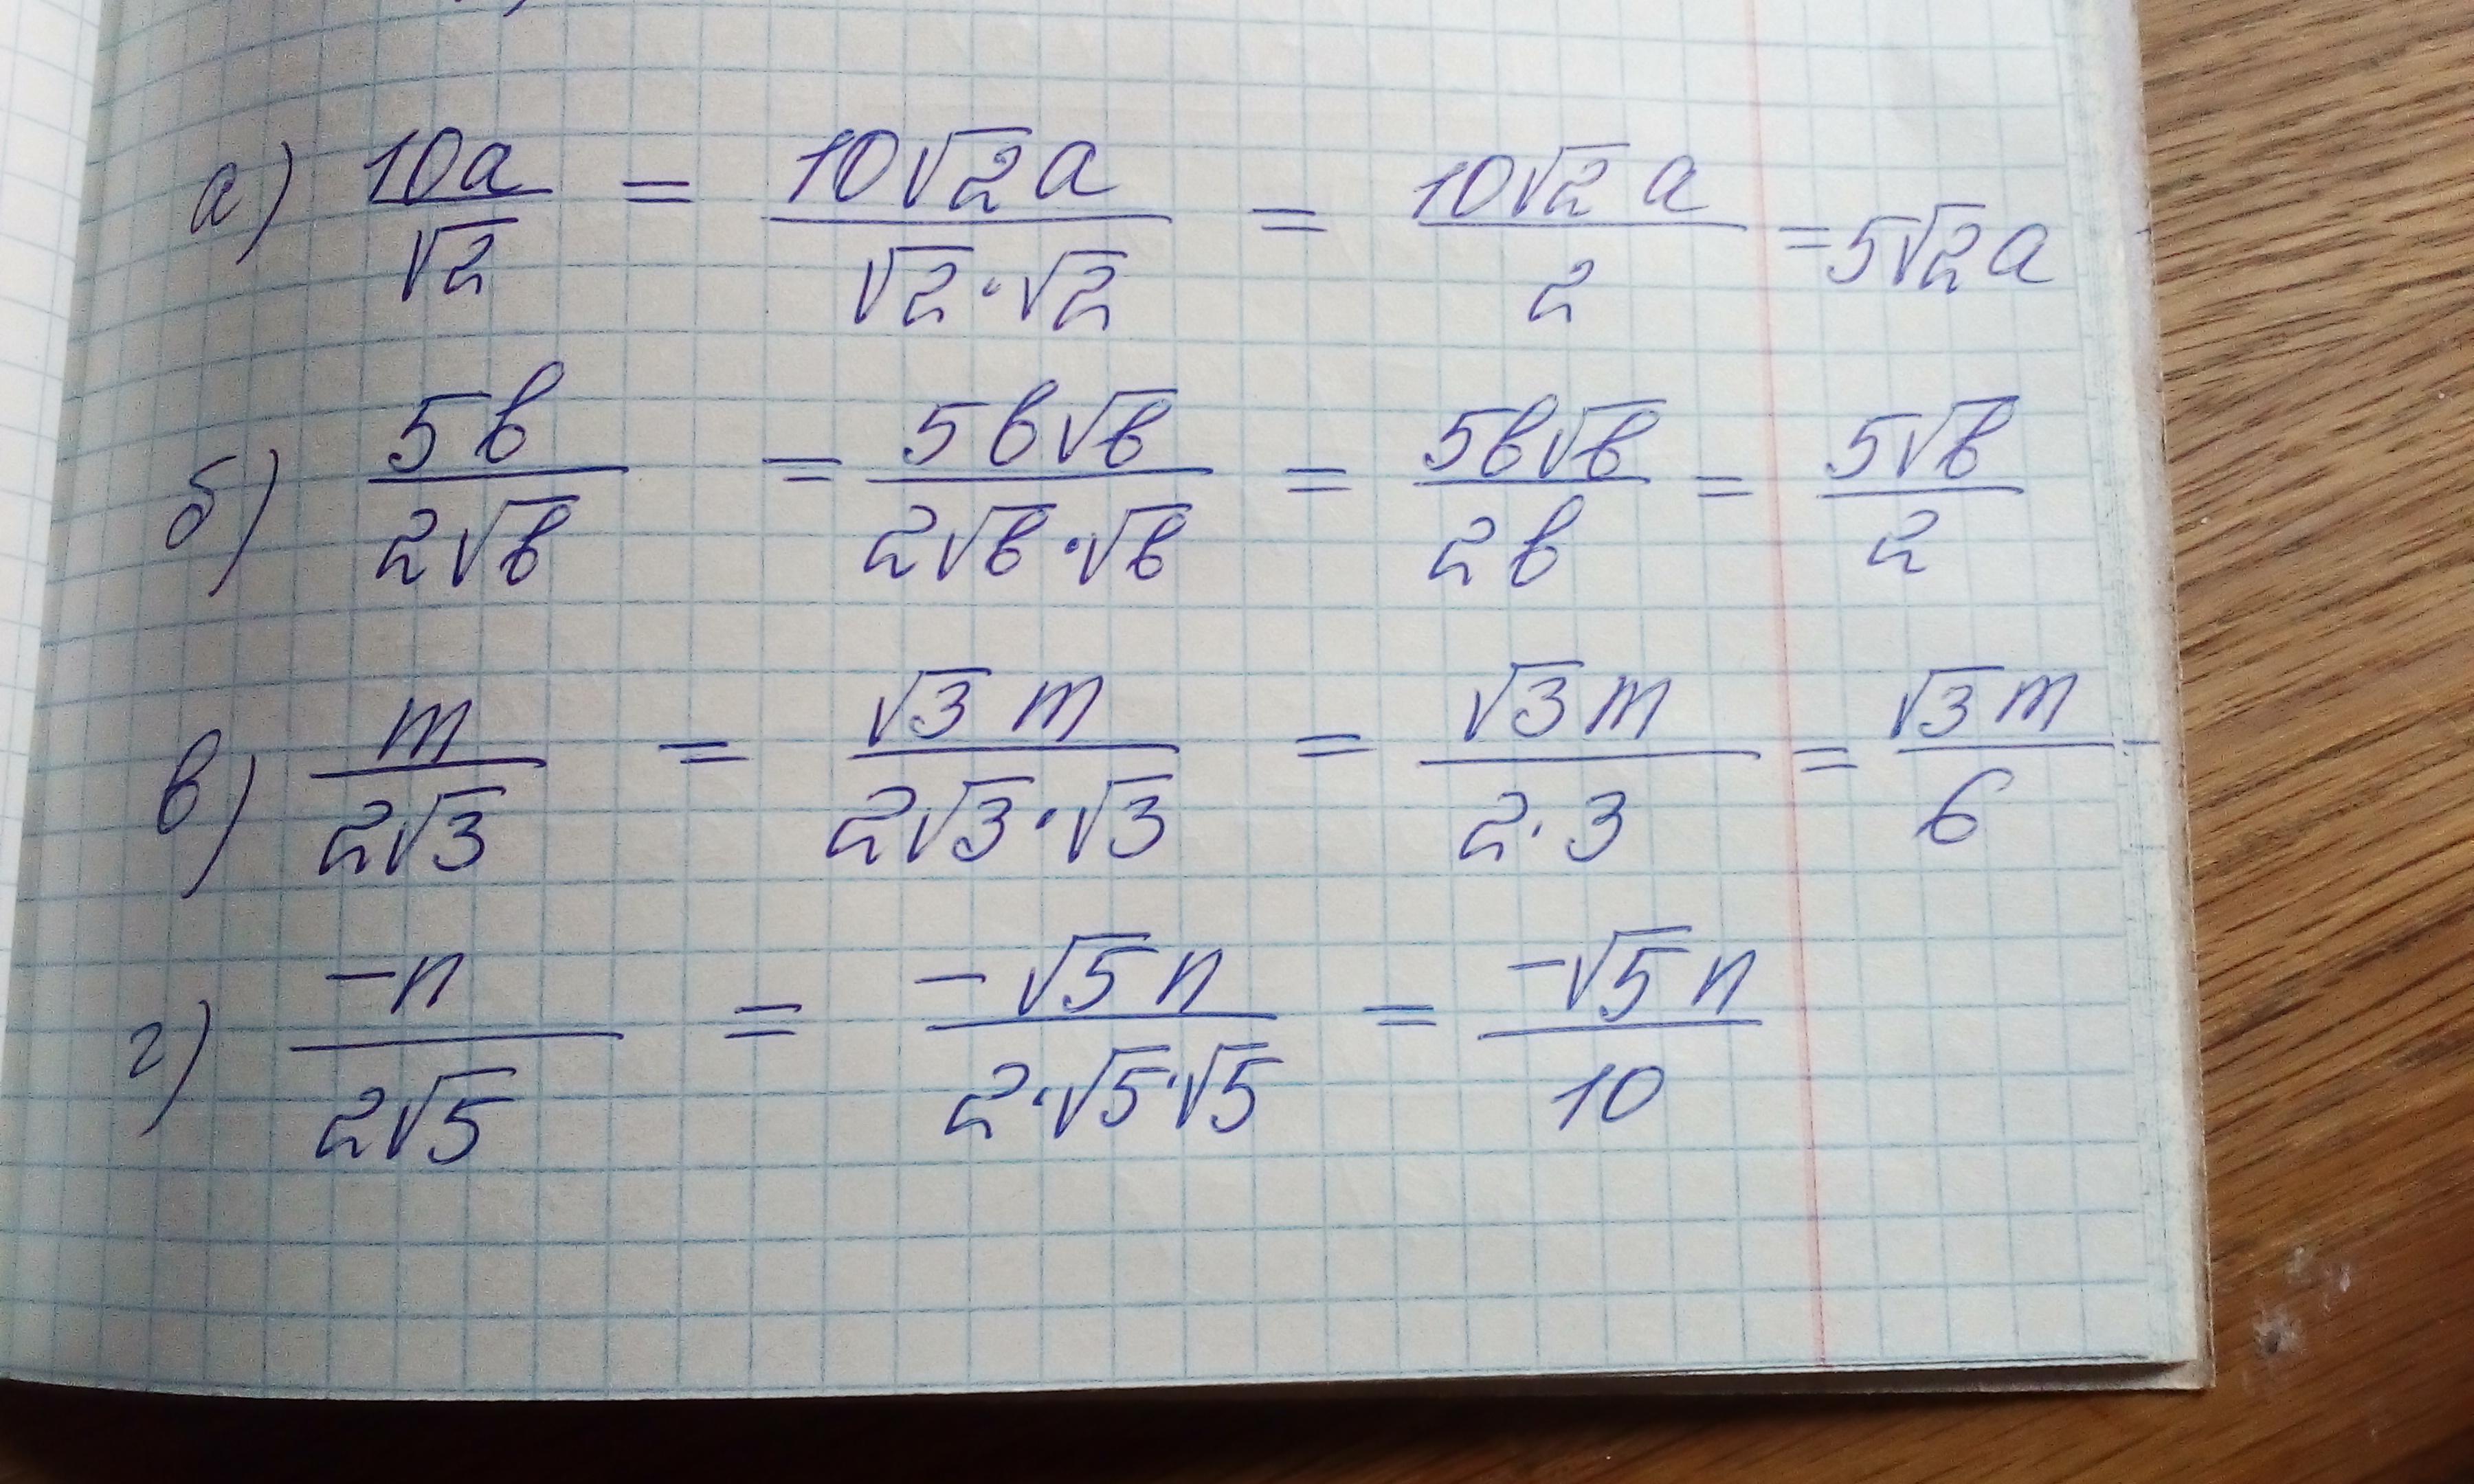 а) 10a/√2 = 10√2a/(√2·√2) = 10√2 a/2 = 5√2a
б) 5b/(2√b) = 5b√b/(2√b·√b) = 5b√b/(2b) = 5√b/2
в) m/(2√3) = √3 m/(2√3·√3) = √3m/(2·3) = √3m/6
г) -n/(2√5) = -√5n/(2·√5·√5) = -√5n/10